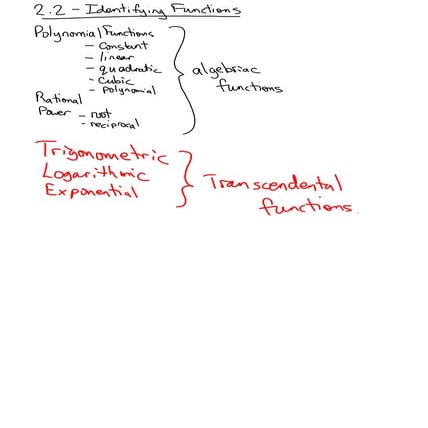 2.2 - Identifying Functions
Polynomial Functions
- constant
- linear
- quadratic
- cubic
- polynomial
Rational
Power - root
- reciprocal
algebriac
functions
Trigonometric
Logarithmic
Exponential
Transcendental
functions.